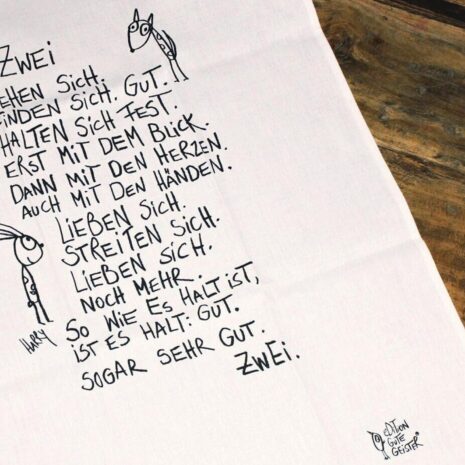 ZWEI
EHEN SICH.
FINDEN SICH. GUT.
HALTEN SICH FEST.
ERST MIT DEM BLICK.
DANN MIT DEN HERZEN.
AUCH MIT DEN HÄNDEN.
LIEBEN SICH.
STREITEN SICH.
LIEBEN SICH.
NOCH MEHR.
SO WIE ES HALT IST,
IST ES HALT: GUT.
SOGAR SEHR GUT.
ZWEI.
HARRY
EDITION
GUTE
GEISTER